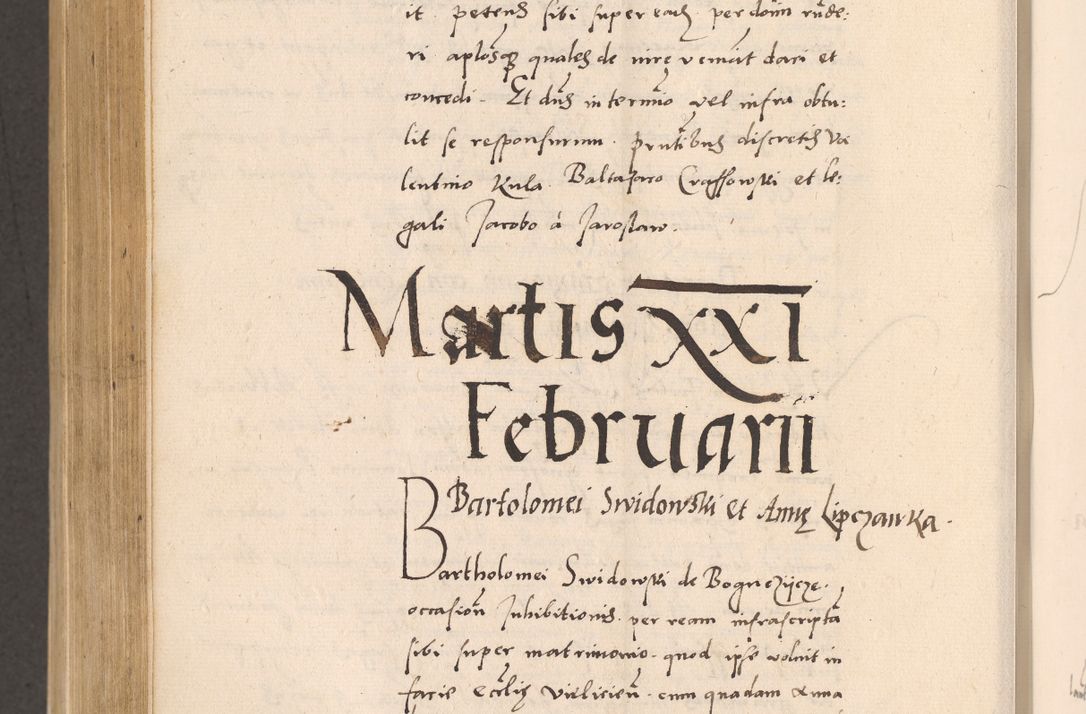 it petens sibi super eadem per dominum rude:
ri aplosque quales de iure veniat dari et
concedi. Et dns in termino vel infra obtu:
lit se responsurum. prntibus discretis Va
lentino Kula Baltazaro Crassowski et le:
gali Jacobo à Jaroslaw.
Martis XXI
Februarii
Bartolomei Swidowski et Annę Lipczawka.
Bartholomei Swidowski de
occasion Inhibitionis per ream infrascripta
sibi super matrimonio quod ipse voluit in
facie ecclie cum quadam Anna